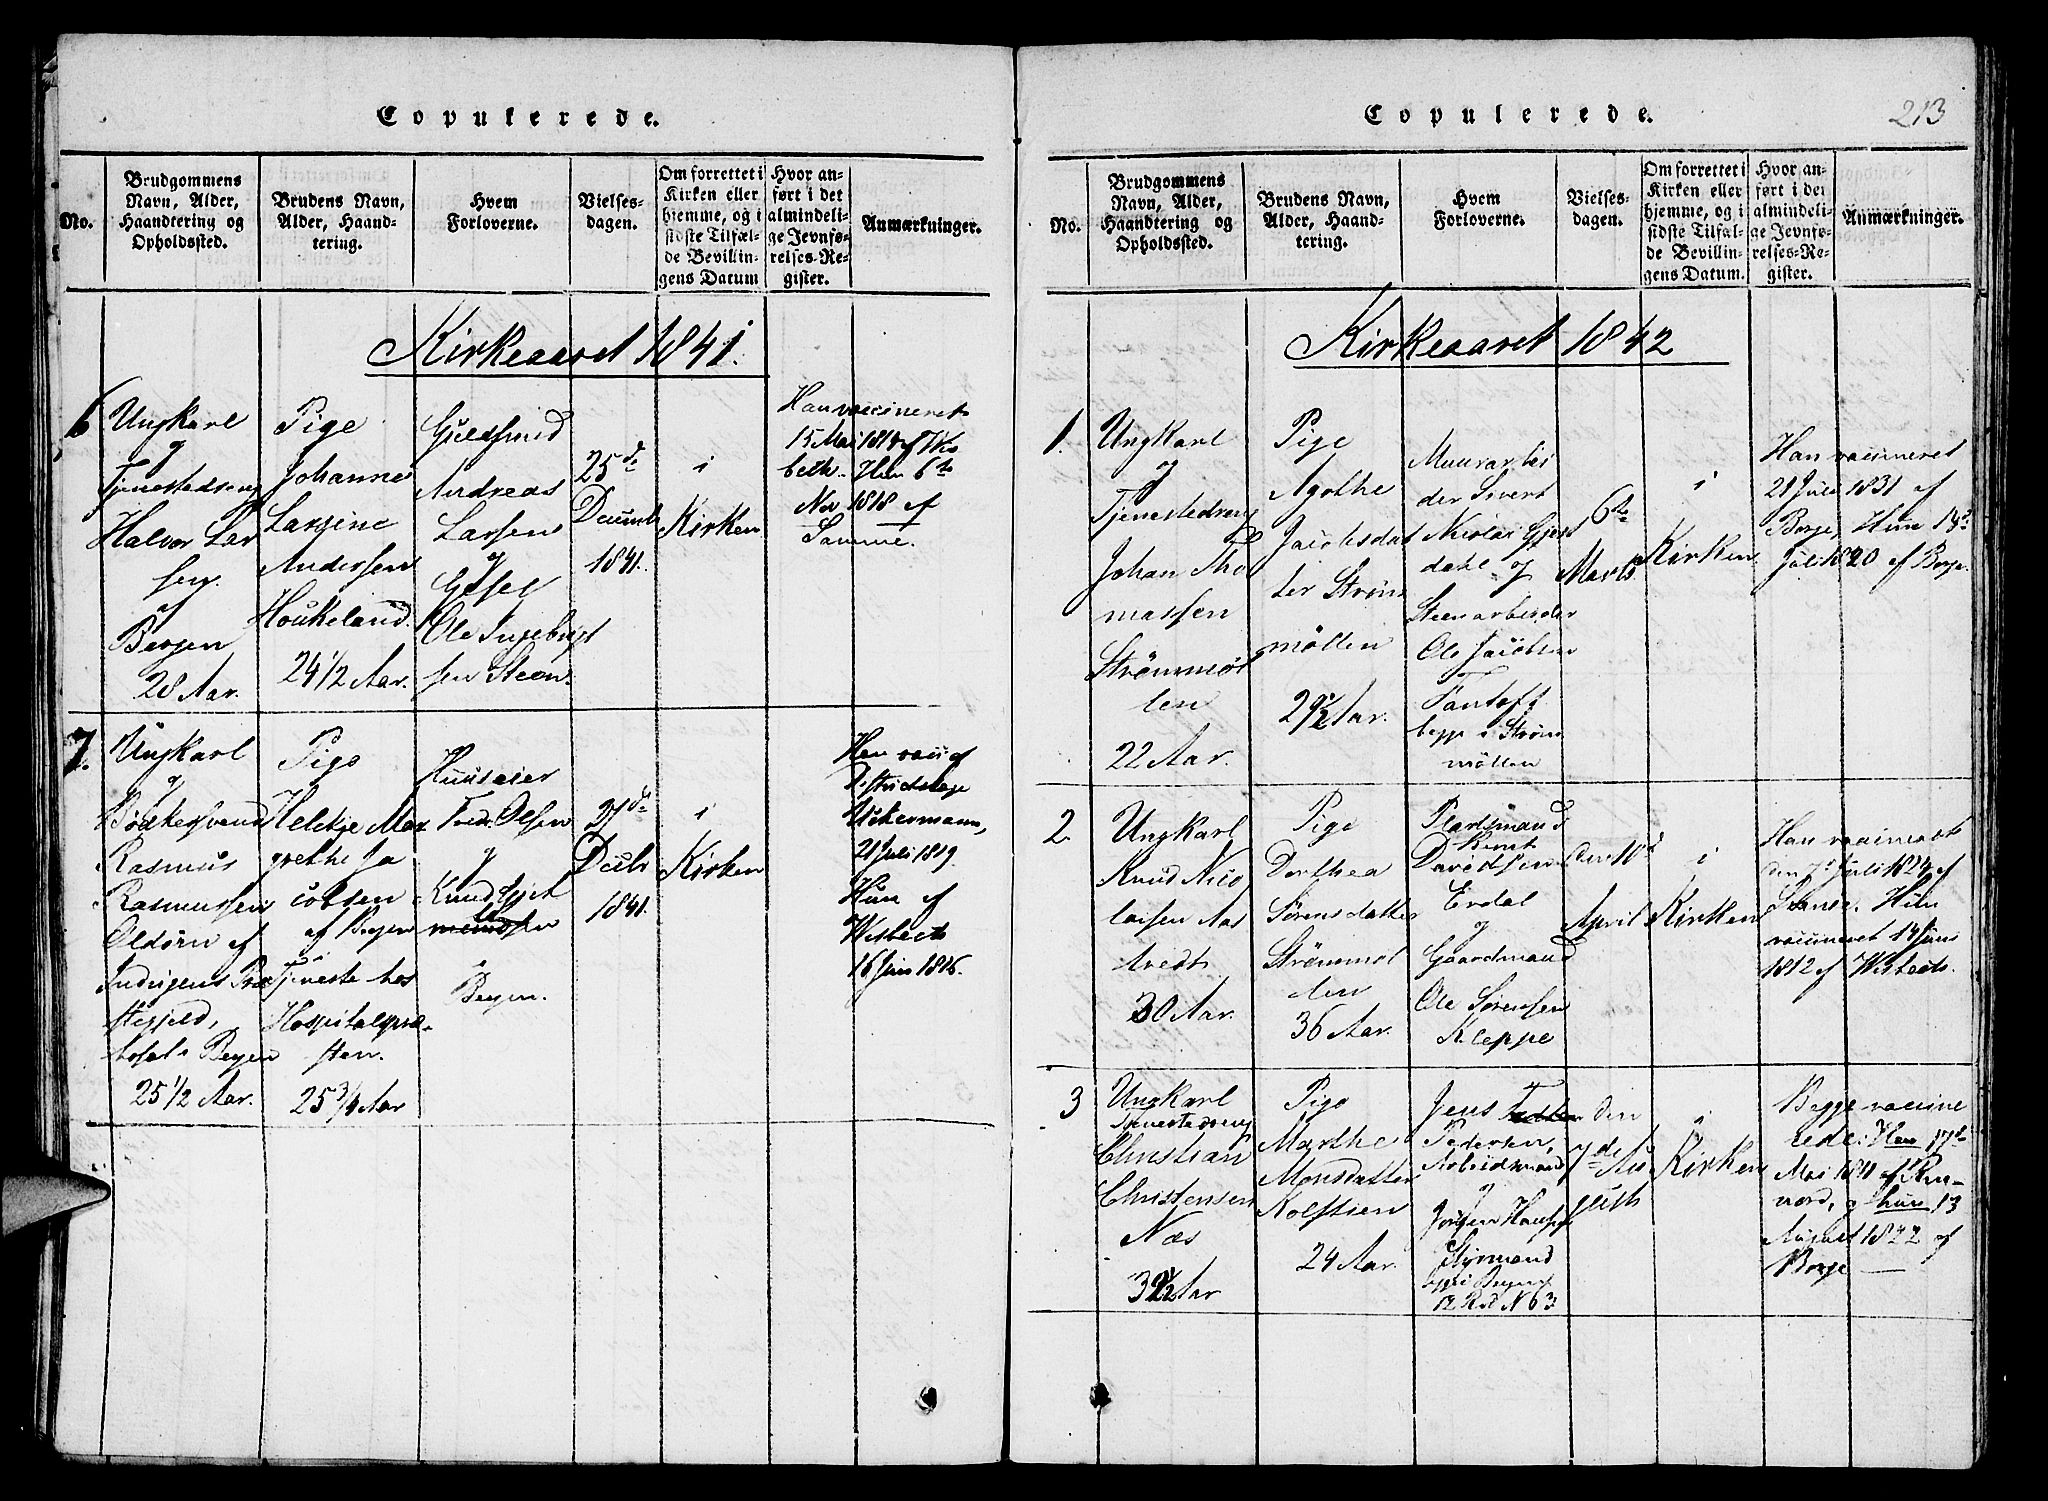 Copulerede.
No.
Brudgommens
Navn, Alder,
Haandtering og
Opholdssted.
Brudens Navn,
Alder, Haand-
tering.
Hvem
Forloverne.
Vielses-
dagen.
Om forrettet i
Kirken eller
hjemme, og i
sidste Tilfæl-
de Bevillin-
gens Datum
Hvor an-
ført i det
almindeli-
ge Jevnfø-
relses-Re-
gister.
Anmærkninger.
Kirkeaaret 1841.
6
Ungkarl
og
Tjenestedreng
Halvor Lar
sen.
af
Bergen
28 Aar.
Pige
Johanne
Larsine
Andersen
Houkeland.
24 1/2 Aar.
Guldsmid
Andreas
Larsen
og
Ole Ingebrigt
sen Steen.
25de
Decembr
1841.
i
Kirken
Han vaccineret
15 Mai 1818 af Wis
beth. Hun 6te
Nov 1818 af
Samme.
7.
Ungkarl
og
Rasmus
Rasmussen
Oldørn af
Indvigens Præ
stegjeld,
Bergen
25 1/2 Aar.
Pige
Helekje Mar
grethe Ja
cobsen
af Bergen
Tjeneste hos
Hospitalspræ-
sten.
25 3/4 Aar
Huuseier
Fred. Olsen
og
Knud Gjet
mundsen
Bergen.
27de
Decbr
1841.
i
Kirken
Han vacc af
Districtslæge
Uckermann,
21 Juli 1819.
Hun af
Wisbech
16 Juni 1816.
Copulerede.
213
No.
Brudgommens
Navn, Alder,
Haandtering og
Opholdssted.
Brudens Navn,
Alder, Haand-
tering.
Hvem
Forloverne.
Vielses-
dagen.
Om forrettet i
Kirken eller
hjemme, og i
sidste Tilfæl-
de Bevillin-
gens Datum.
Hvor an-
ført i det
almindeli-
ge Jevnfø-
relses-Re-
gister.
Anmærkninger.
Kirkeaaret 1842
1.
Ungkarl
og
Tjenestedreng
Johan Tho
massen
Strømmøl
len
22 Aar.
Pige
Agothe
Jacobsdat
ter Strøm
møllen
29 1/2 Aar.
Muurarbei
der Sivert
Nicolai Gjers
dahl og
Steenarbeider
Ole Jacobsen
Tantoft
begge i Strøm
møllen
6te
Marts
i
Kirken
Han vaccineret
21 Juli 1831 af
Borge, Hun 19de
Juli 1820 af Borge.
2
Ungkarl
Knud Nico
laisen Aas
tvedt
30 Aar.
Pige
Dorthea
Sørensdatter
Strømmøl
len
36 Aar.
Pladsmand
Bernt
Davidsen
Erdal
og
Gaardmand
Ole Sørensen
Kleppe
den 10de
April
i
Kirken
Han vaccineret
den 7de Juli 1824 af
Hun
vaccineret 14 Juni
1812 af Wisbech.
3
Ungkarl
Tjenestedreng
Christian
Christensen
Næs
39 1/2 Aar
Pige
Marthe
Monsdatter
Kolstien
24 Aar.
Jens
Pedersen,
Arbeidsmand
og
Jørgen
Styrmand
begge i Bergen
12 Rod N 63
den
7de Au
gusti
i
Kirken
Begge vaccine
rede: Han 17de
Mai 1811 af
og hun 13
August 1822 af
Borge